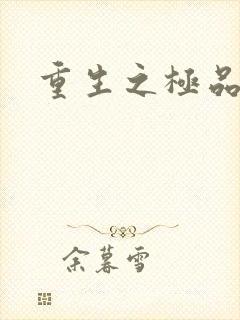 重生之極品
余暮雪